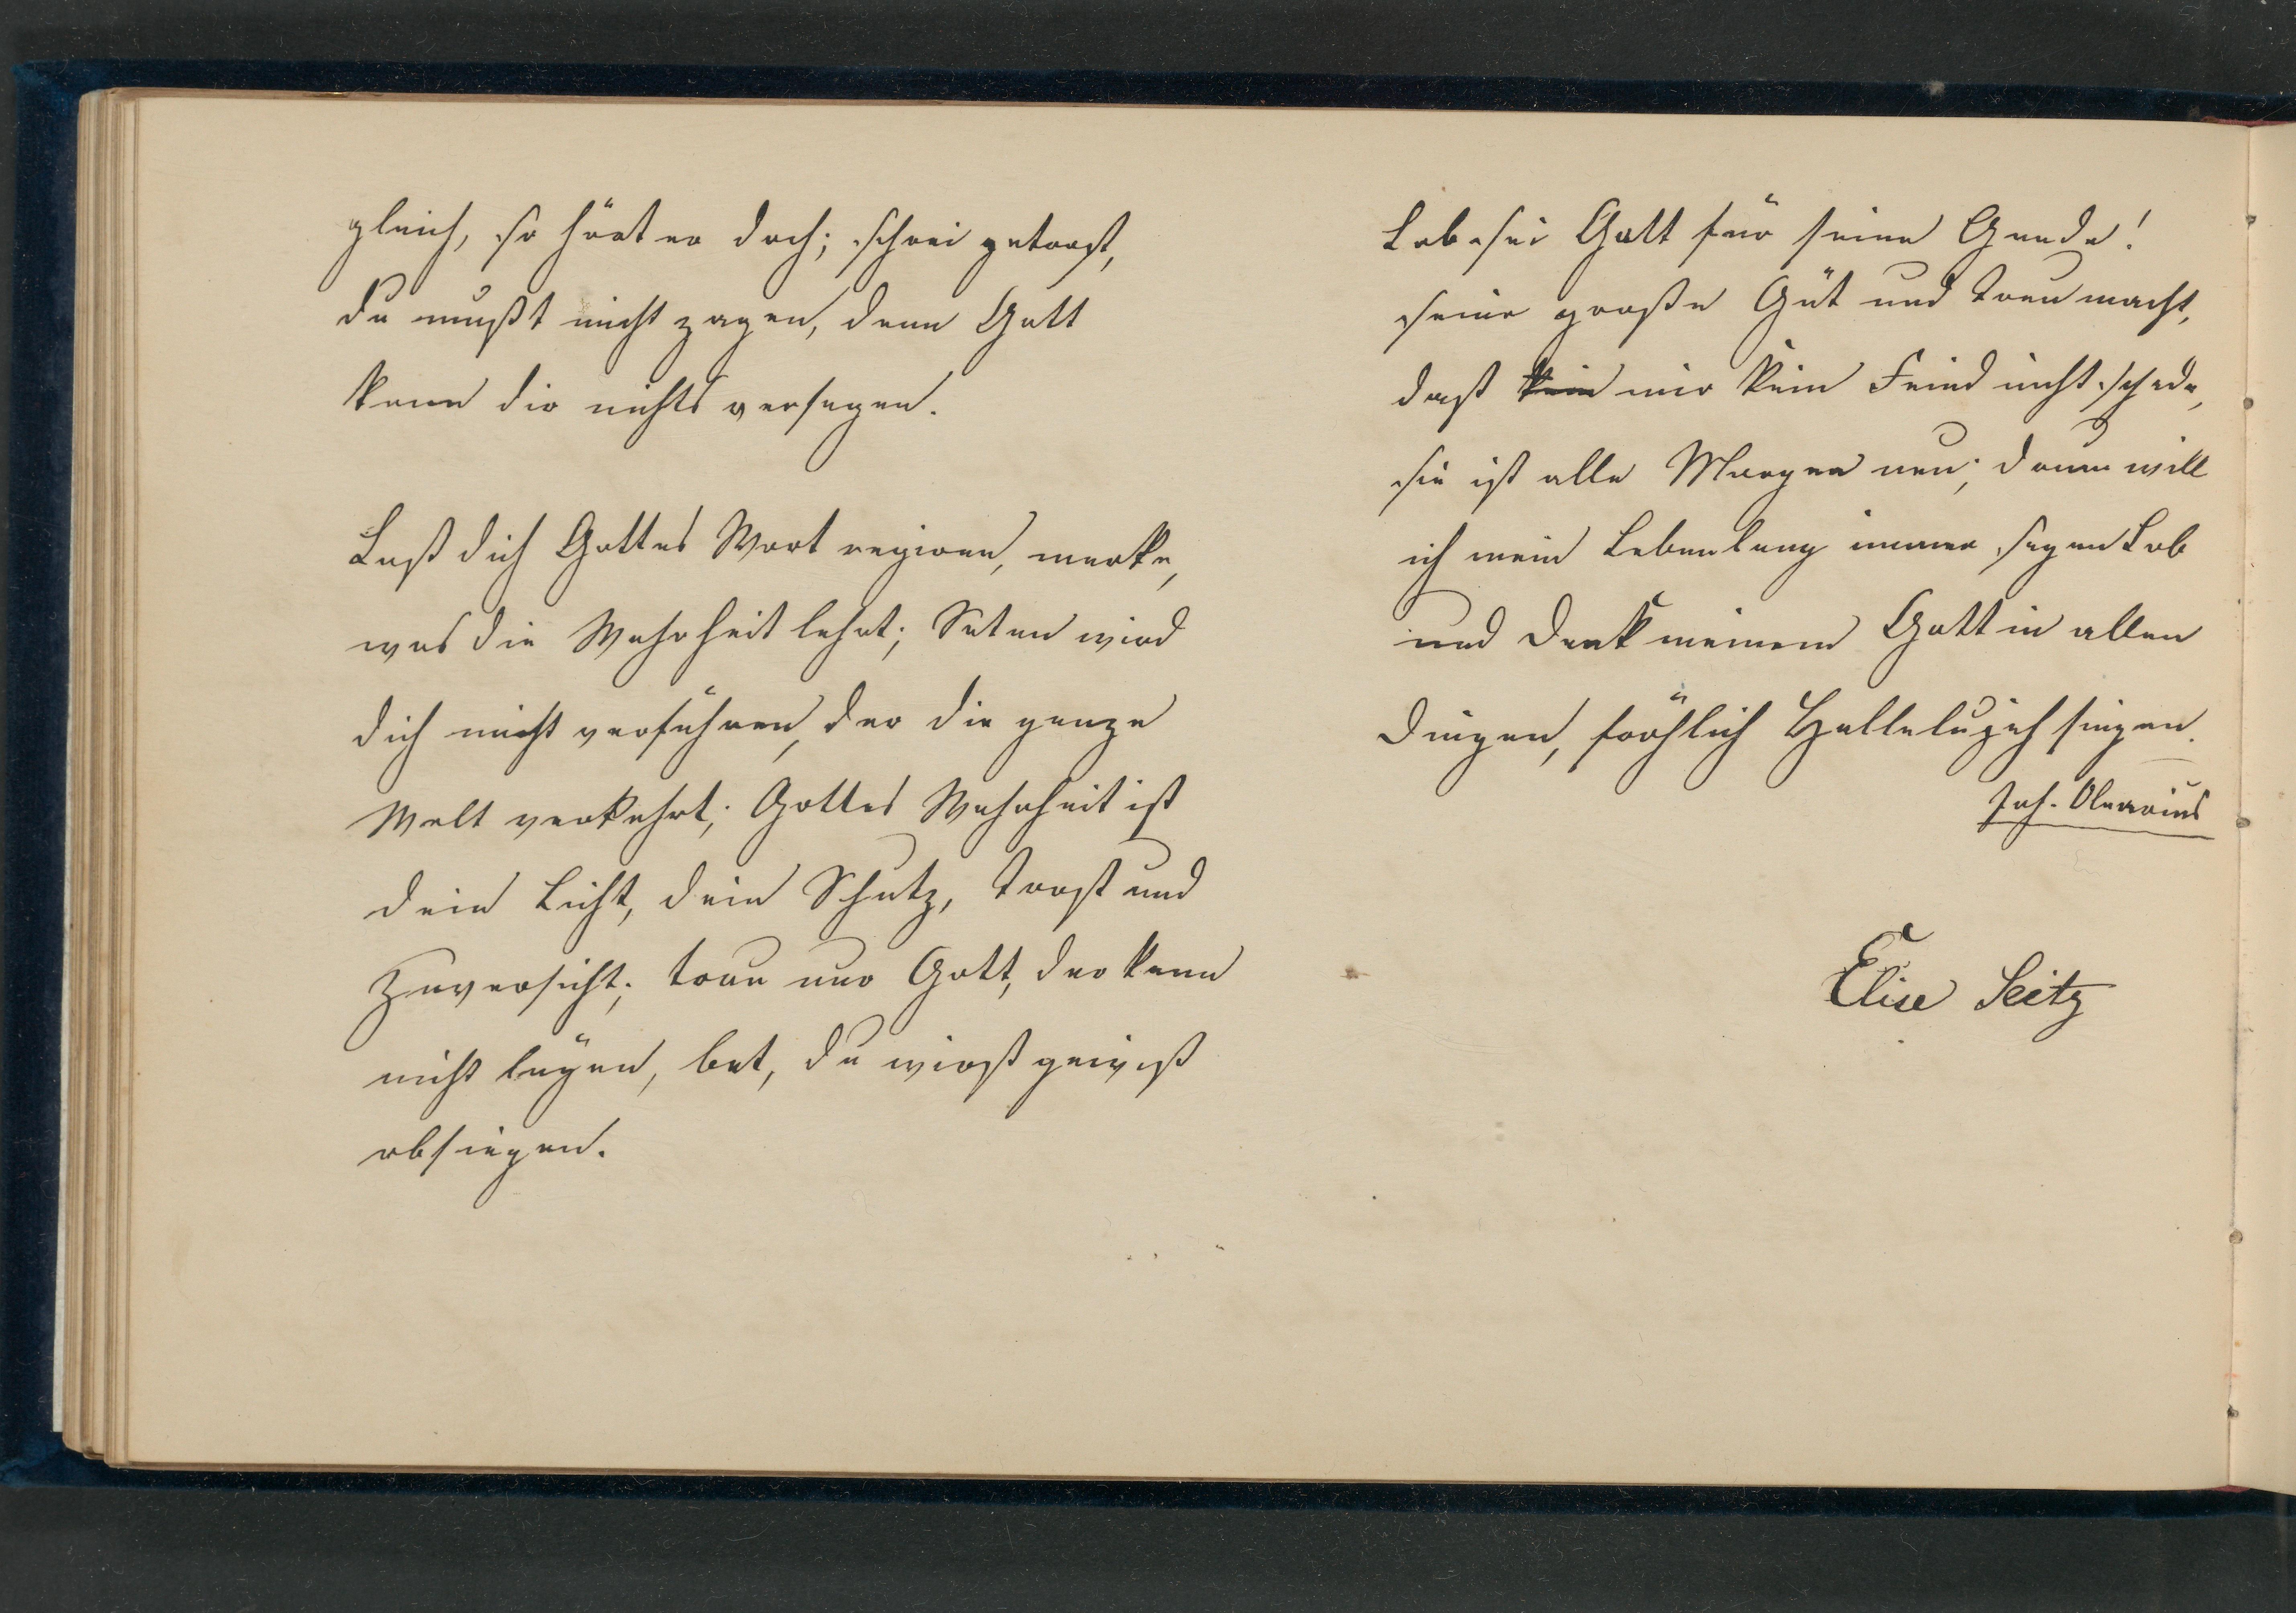 gleich, so höret er doch; schrei getrost,
du mußt nicht zagen, denn Gott
kann dir nichts versagen.
Laß dich Gottes Wort regiren, merke,
was die Wahrheit lehrt; Satan wird
dich nicht verführen, der die ganze
Welt verkehrt; Gottes Wahrheit ist
dein Licht, dein Schutz, Trost und
Zuversicht; trau nur Gott, der kann
nicht lügen, bet, du wirst gewiß
obsiegen.
Lob sei Gott für seine Gnade!
seine große Güt und Treu macht,
daß kein mir kein Feind nicht schade,
sie ist alle Morgen neu; drum will
ich mein Lebenlang immer sagen Lob
und Dank meinem Gott in allen
Dingen, fröhlich Hallelujah singen.
Joh. Olearius
Elise Seitz